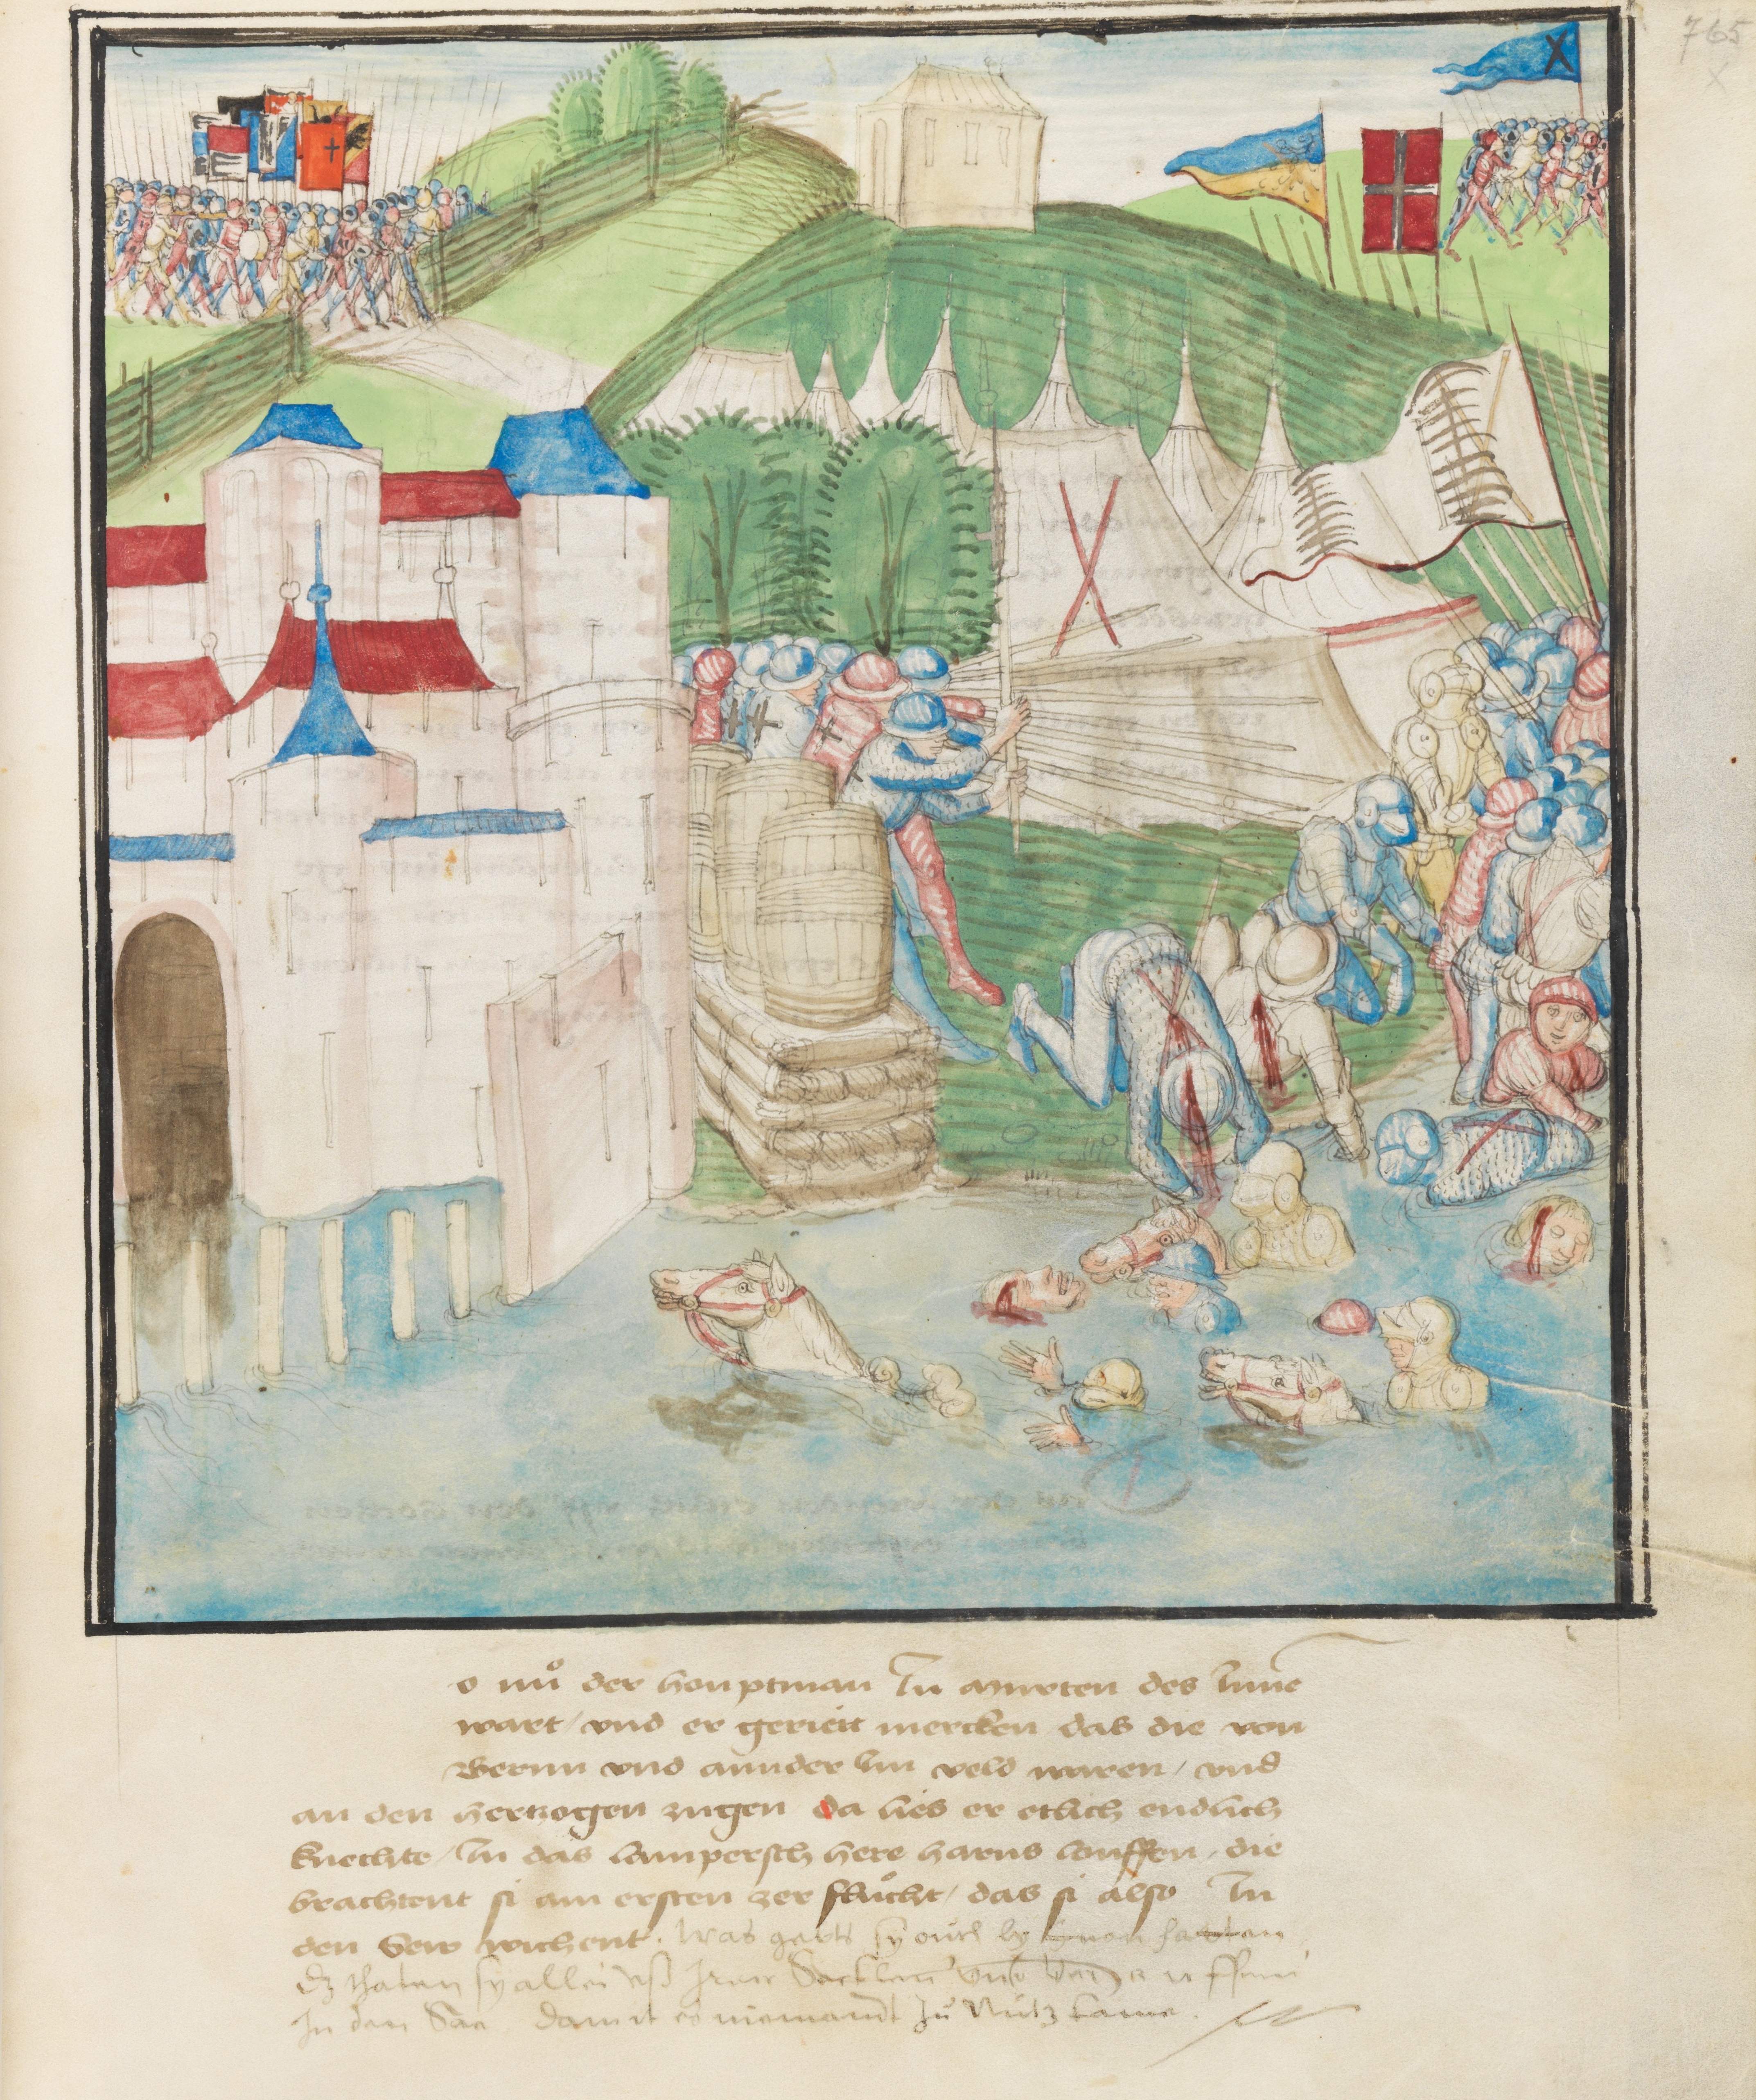 765
X
o nuͦ der houptman In murten des Inne
wart / vnd er gerieit mercken das die von
Bernn vnd annder Im veld waren / vnd
an den hertzogen zugen da lies er etlich endlich
knechte / In das lampersch here harus louffen / die
brachtent si am ersten zer fluͦcht / das si also In
den Sew wichent. was gelts sy ouch by
dz thaten sy alles vß Irnen Secklen vnd
In den See damit es niemandt zuͦ Nutz kame.